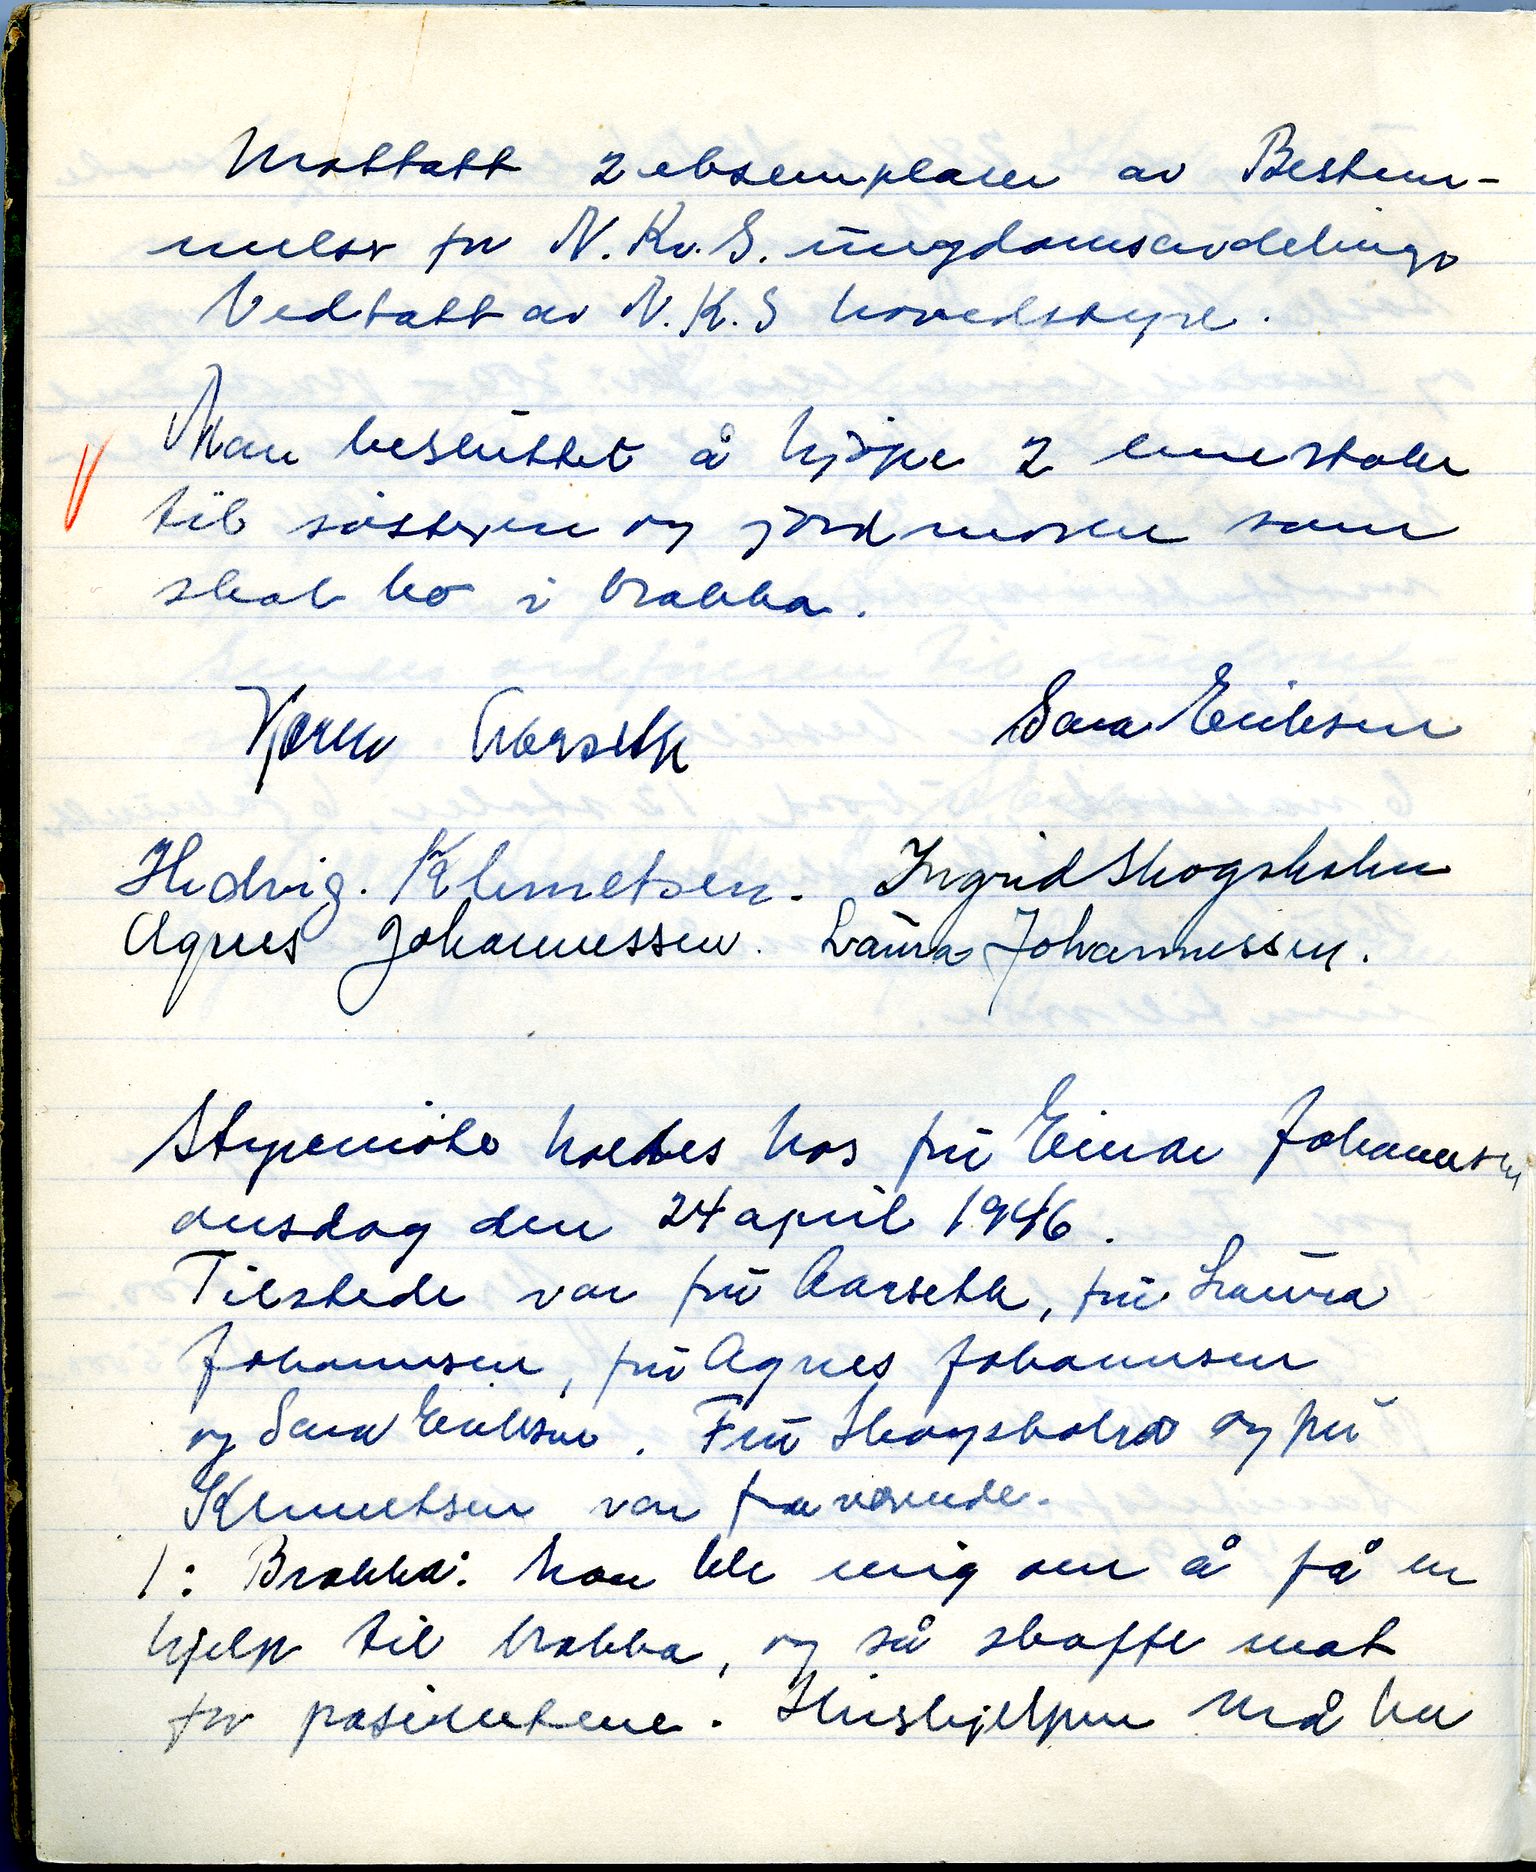 Mottatt 2 eksemplarer av Bestem-
melser for N.Kv.S. ungdomsavdelinge
Vedtatt av N.K.S hovedstyre.
Man besluttet å kjöpe 2 lenestoler
til sösteren og jordmoren som
skal bo i brakka.
Aarseth Sara Eriksen
Hedvig. Klemetsen. Ingrid Skogsholm
Agnes Johannessen. Laura Johannessen.
Styremöte holdtes hos fru Einar Johannesen
onsdag den 24 april 1946.
Tilstede var fru Aarseth, fru Laura
Johannsen, fru Agnes Johannsen
og Sara Eriksen. Fru Skogsholm og fru
Klemetsen var fraværende.
1: Brakka: Man ble enig om å få en
hjelp til brakka, og så skaffe mat
for pasientene. Hushjelpen må ha